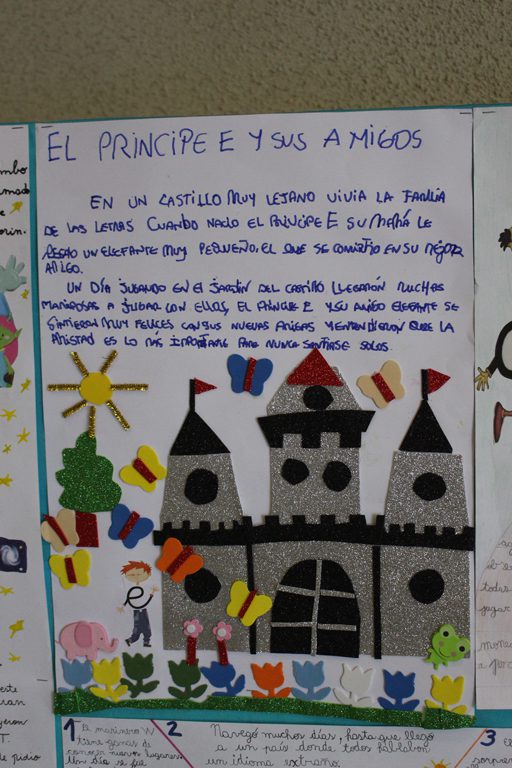 EL PRINCIPE E Y SUS AMIGOS
EN UN CASTILLO MUY LEJANO VIVIA LA FAMILIA
DE LAS LETRAS CUANDO NACIO EL PRINCIPE E SU MAMÁ LE
REGALO UN ELEFANTE MUY PEQUEÑO, EL QUE SE CONVIRTIO EN SU MEJOR
AMIGO.
UN DÍA JUGANDO EN EL JARDÍN DEL CASTILLO LLEGARON MUCHAS
MARIPOSAS A JUGAR CON ELLOS, EL PRINCIPE E Y SU AMIGO ELEFANTE SE
SINTIERON MUY FELICES CON SUS NUEVAS AMIGAS Y ENTENDIERON QUE LA
AMISTAD ES LO MÁS IMPORTANTE PARA NUNCA SENTIRSE SOLOS.
e
1 El marinero W
tiene ganas de
conocer nuevos lugares
Un día se fue
2 Navegó muchos días, hasta que llegó
a un país donde todos hablaban
un idioma extraño.
3
todas
jugar